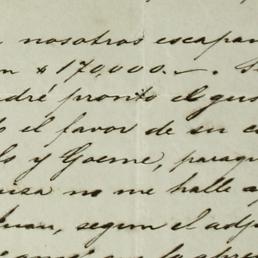 nosotros escapan
n $170,000.—.
dré pronto el gus
o el favor de su c
lo y Goeme, paraqu
uisa no me halle a
Juan, segun el adj